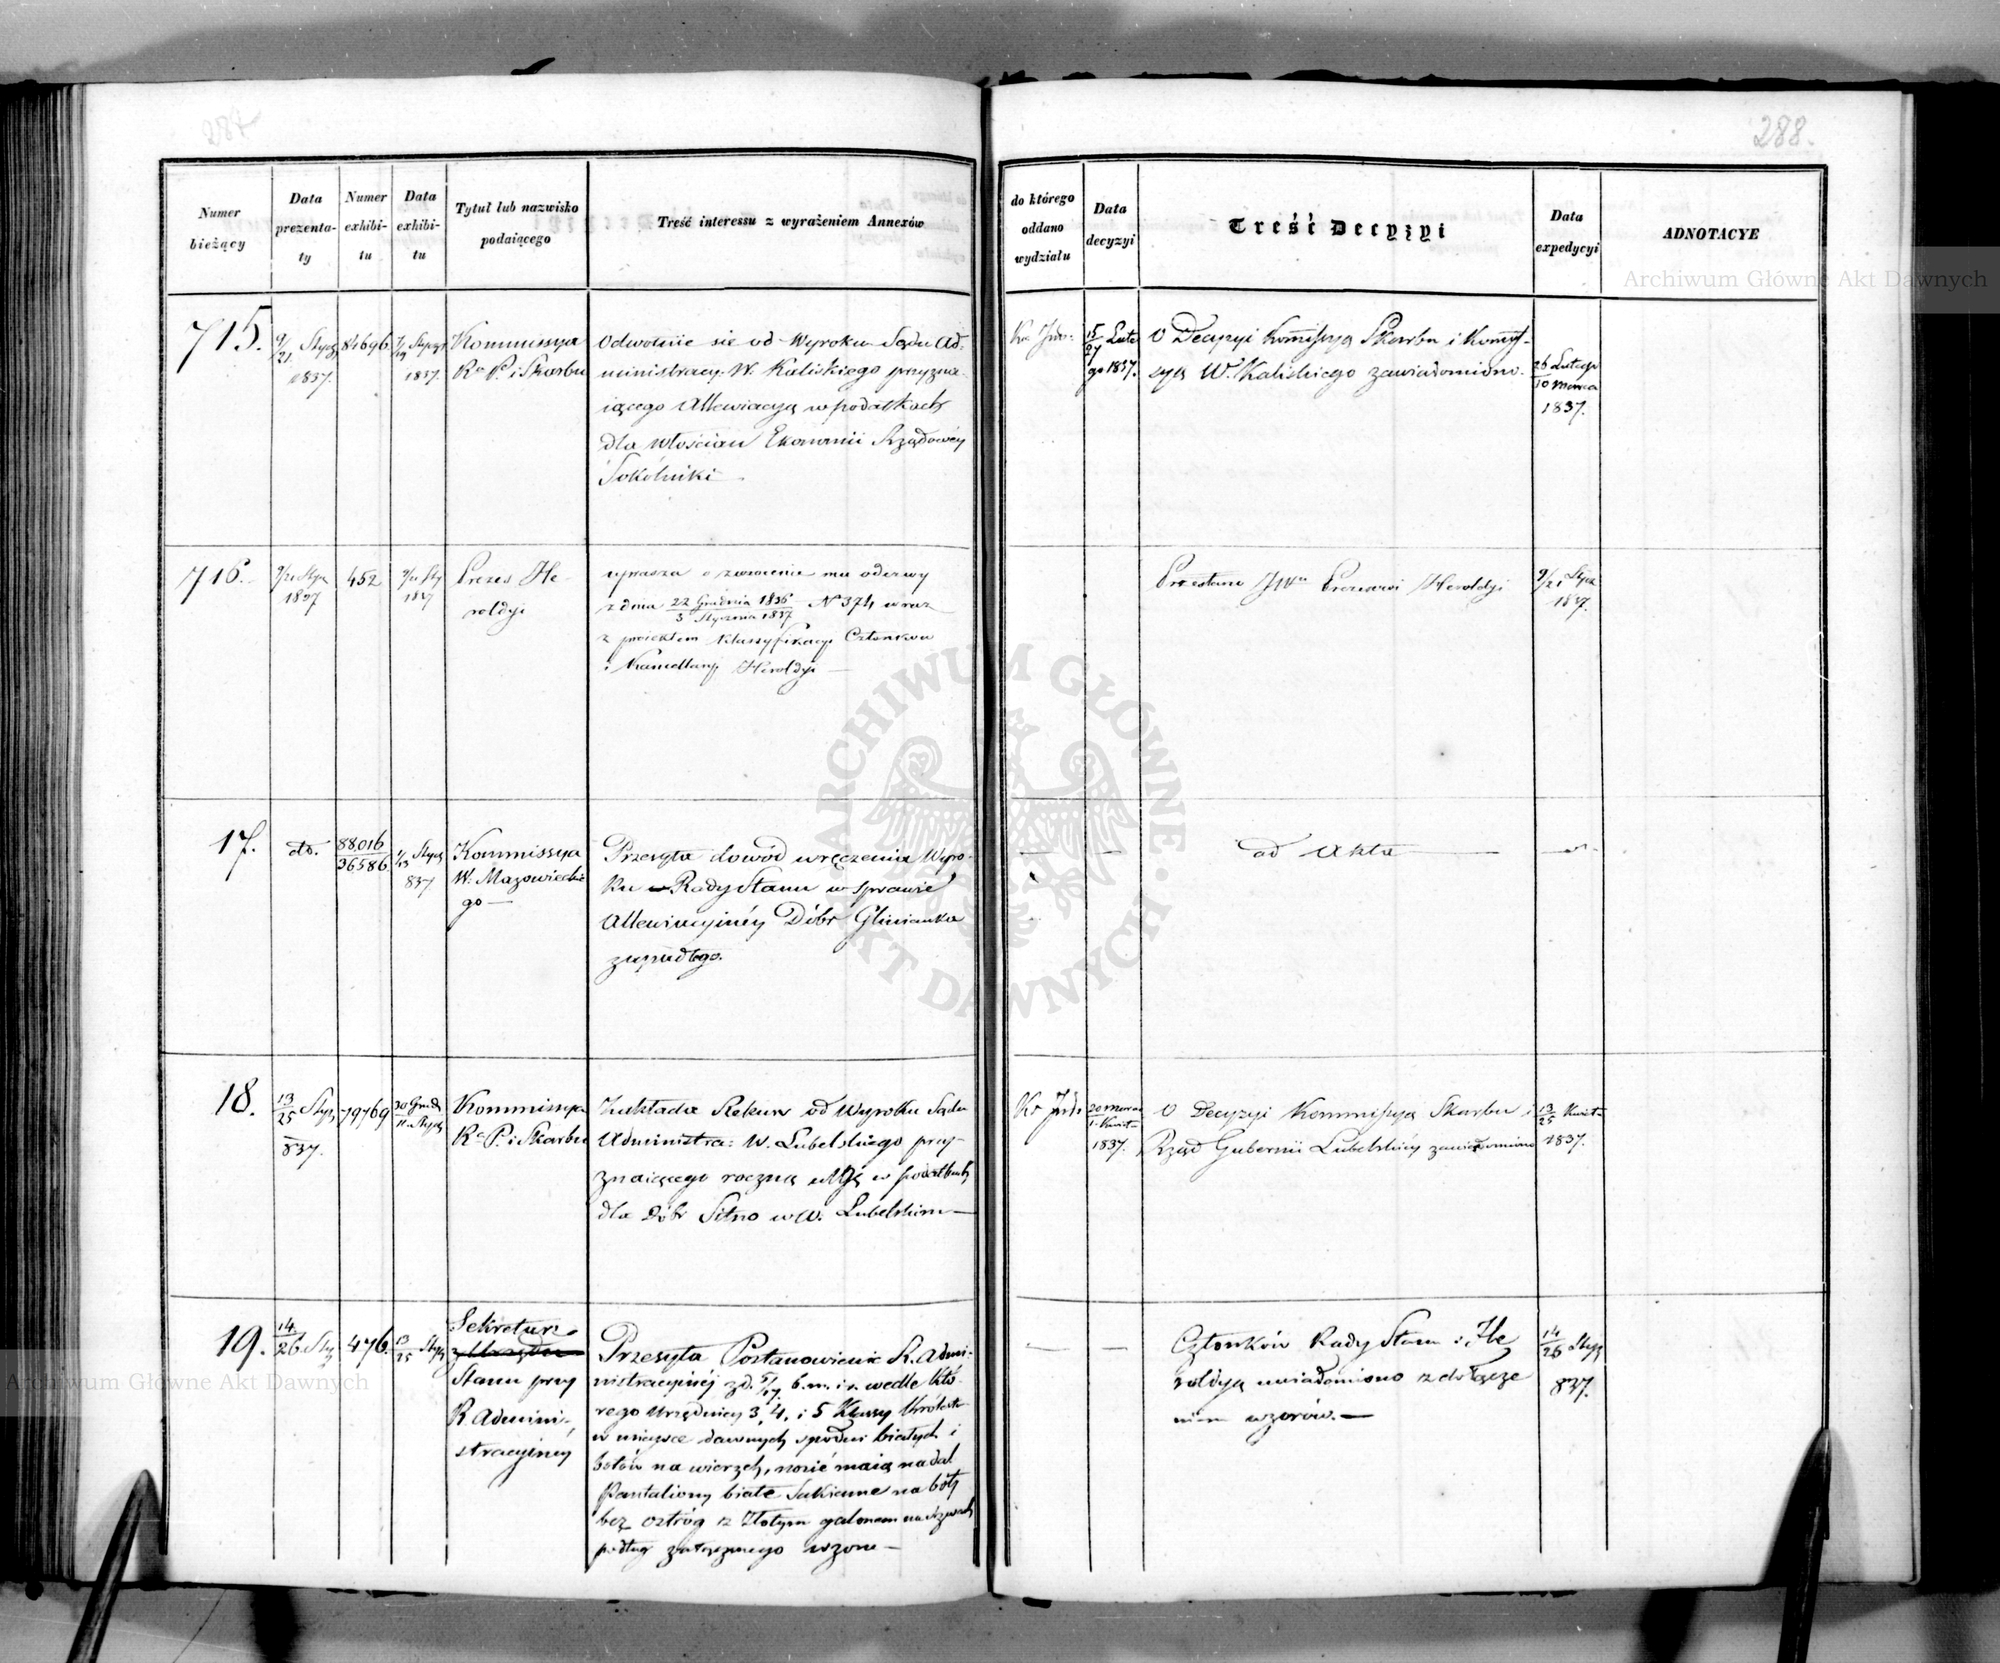 287
288.
Numer bieżący
Data prezenta-ty
Numer exhibi-tu
Data exhibi-tu
Tytuł lub nazwisko podaiącego
Treść interessu z wyrażeniem Annexów
do którego oddano wydziału
Data decyzyi
Treść Decyzyi
Data expedycyi
ADNOTACYE
715.
9/21 Stycz
1837.
84696
7/19 Stycz
1837.
Kommissya
R. P. i Skarbu
Odwołuie się od Wyroku Sądu Ad-
ministracy: W. Kaliskiego przyzna-
iącego Allewiacyą w podatkach
dla Włościan Ekonomii Rządowey
Sokolniki
15/27 Lute
go 1837.
O Decyzyi Kommissyą Skarbu i Kommis-
syą W. Kaliskiego zawiadomiono.
26 Lutego
10 Marca
1837.
716.
9/21 Stycz
1837
452
9/21 Sty
1837
Prezes He-
roldyi
uprasza o zwrócenie mu odezwy
z dnia 22 Grudnia 1836 / 3 Stycznia 1837 N 374 wraz
z proiektem klassyfikacyi Członków
i Kancellaryi Heroldyi
Przesłano JWu Prezesowi Heroldyi
9/21 Stycz
1837.
17.
dto.
88,016
36586
1/13 Stycz
837
Kommissya
W. Mazowieckie
go
Przesyła dowód wręczenia Wyro-
ku Rady Stanu w sprawie
Allewiacyinéy Dóbr Glinianka
zapadłego.
ad Akta
18.
13/25 Stycz
837.
79769
30 Grud
11 Stycz
Kommissya
R. P. i Skarbu
Zakłada Rekurs od Wyroku Sądu
Administra: W. Lubelskiego przy-
znaiącego roczną w podatkach
dla Dóbr Sitno w W. Lubelskim
20 Marca
1 Kwiet
1837.
O Decyzyi Kommissyą Skarbu i
Rząd Gubernii Lubelskiéy zawiadomiono
13/25 Kwiet
1837.
19.
14/26 Sty
476.
13/25 Stycz
Sekretarz
Stanu przy
R. Admini-
stracyiney
Przesyła Postanowienie R. Admi-
nistracyinéj z d. 5/17 b. m. i r. wedle któ-
rego Urzędnicy 3, 4, i 5 Klassy Królestw
w mieysce dawnych spodni białych i
botów na wierzch, nosić maią nadal
Pantaliony białe Sukienne na bóty
bez ostróg z złotym galonem na szwach
podług załączonego wzoru
Członków Rady Stanu i He
roldyą uwiadomiono z dołącze
niem wzorów.
14/26 Stycz
837.
Archiwum Główne Akt Dawnych
ARCHIWUM GŁÓWNE AKT DAWNYCH
Archiwum Główne Akt Dawnych